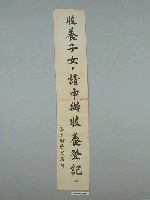 收養子女，請申辦收養登記。